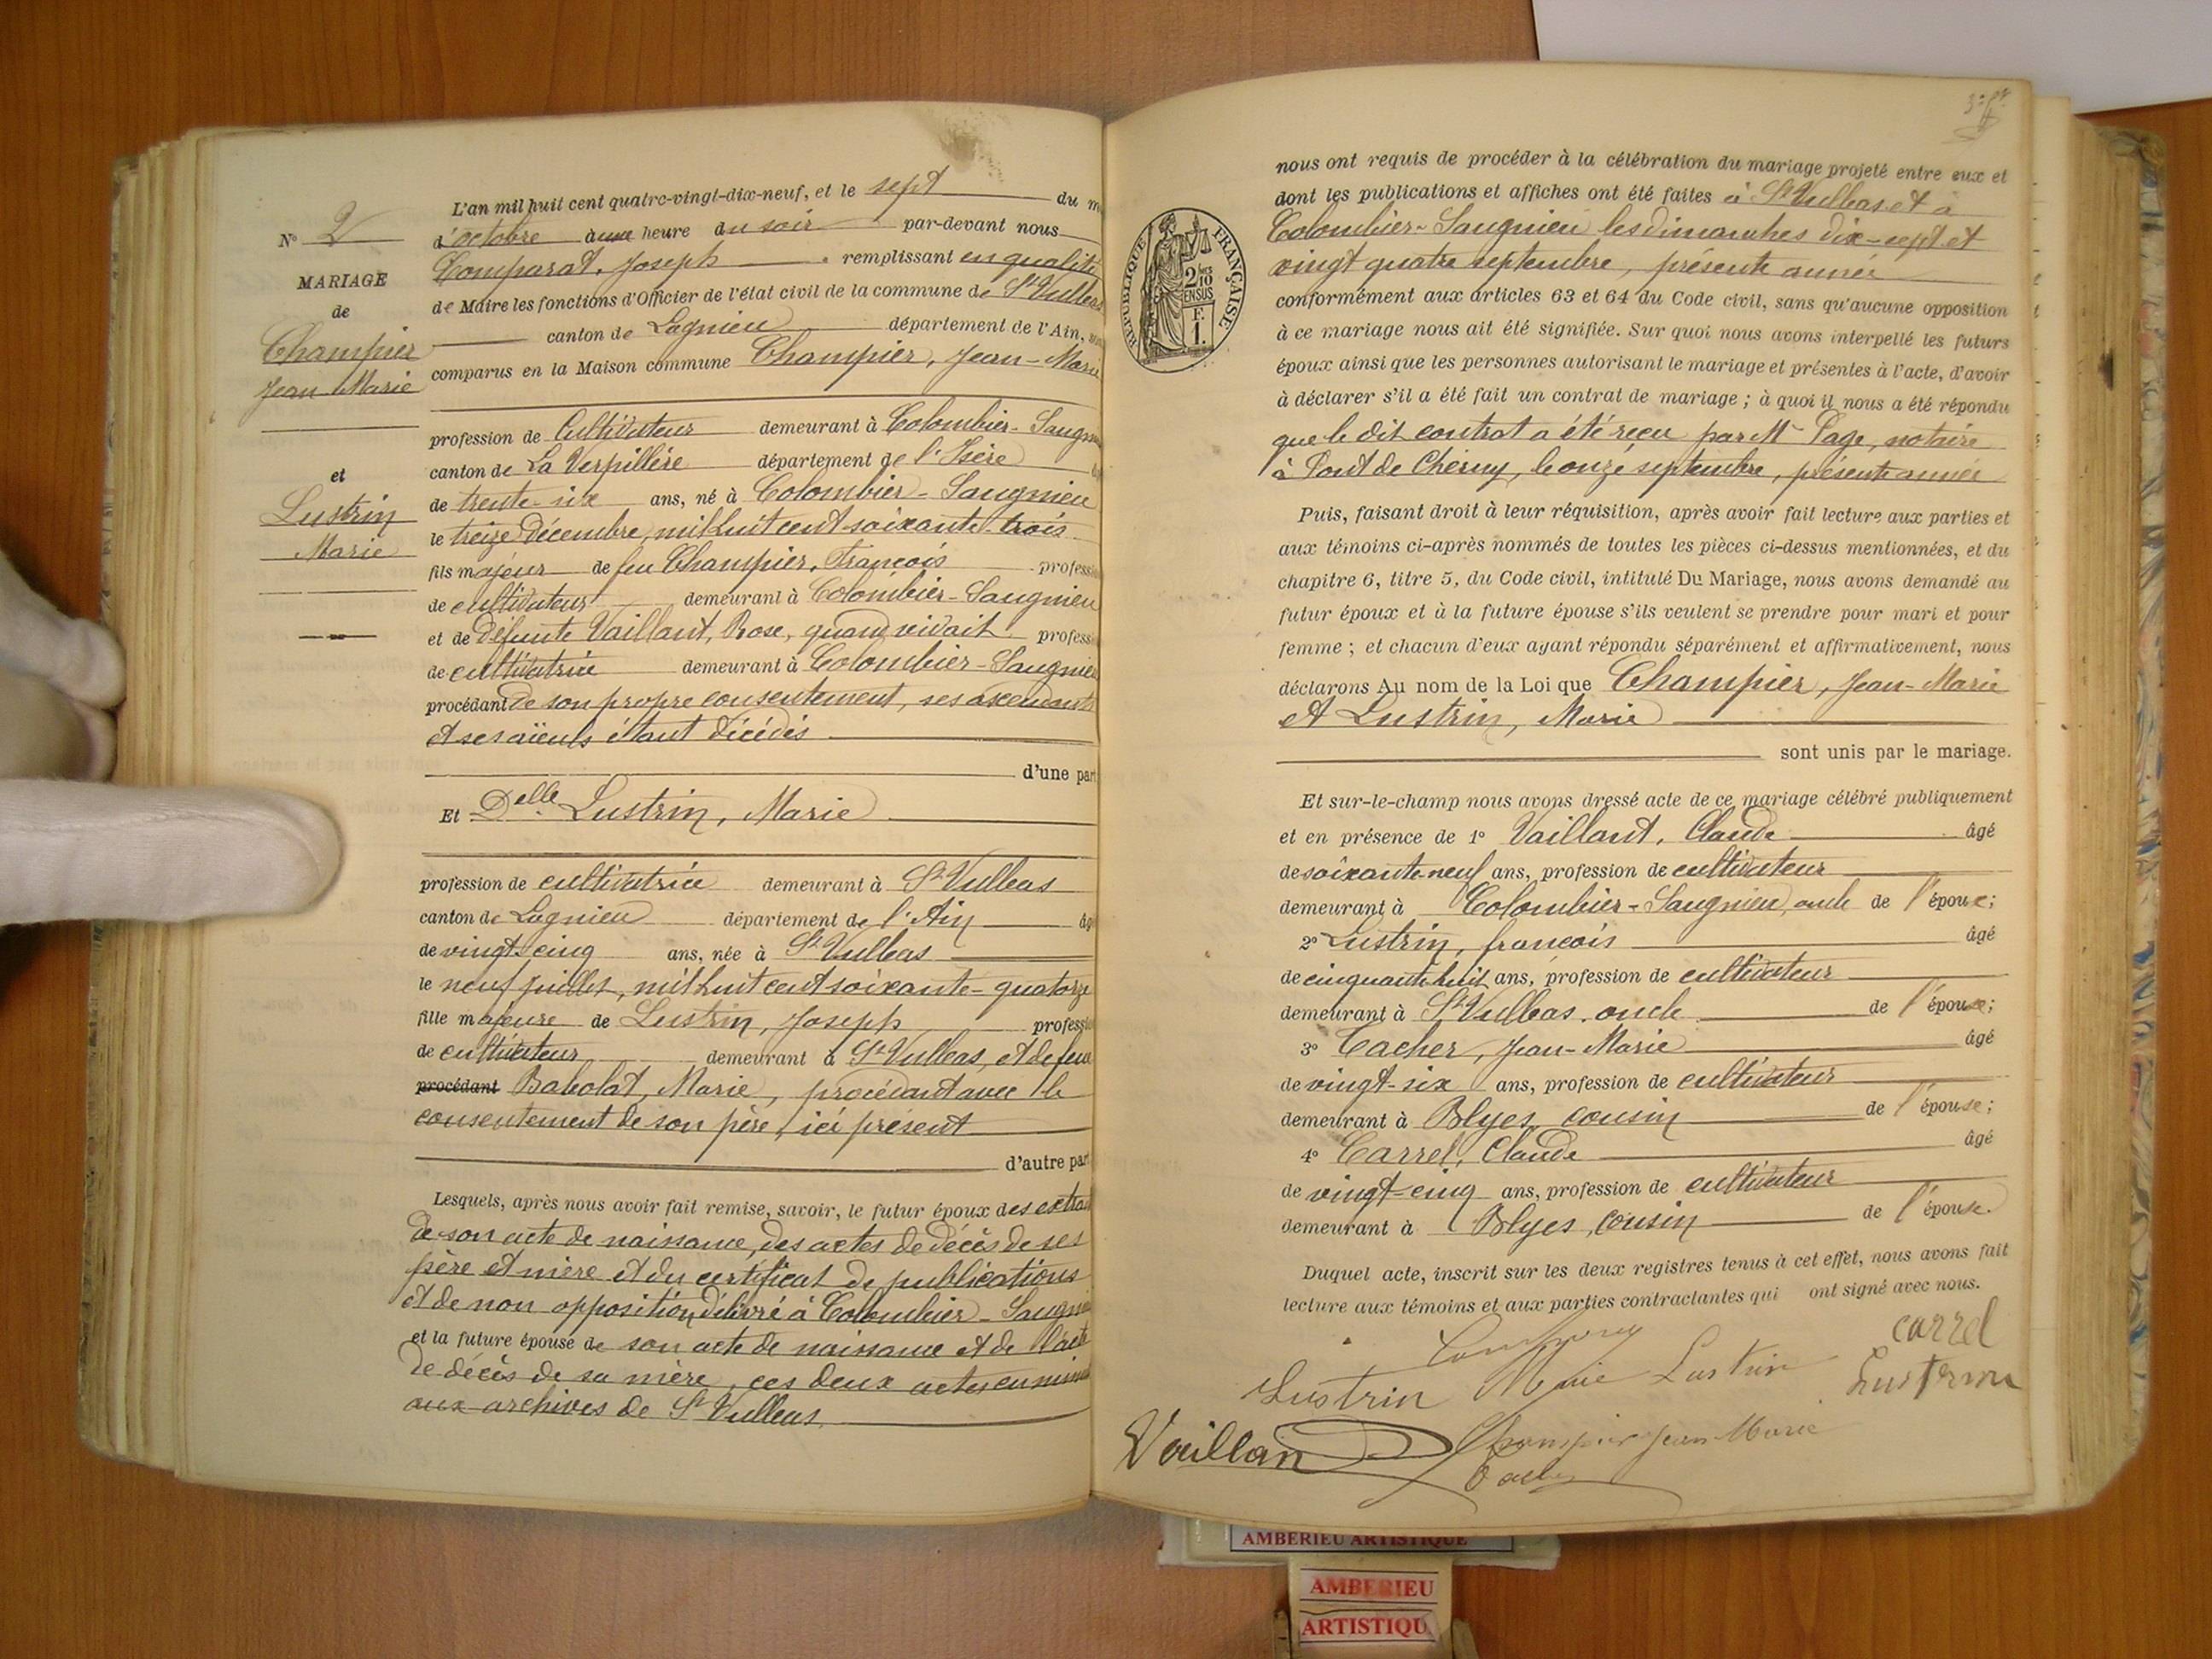 N° 2
MARIAGE
de
Champier
Jean Marie
et
Lustrin
Marie
L'an mil huit cent quatre-vingt-dix-neuf, et le sept du m
d'octobre à une heure du soir par-devant nous
Comparat, Joseph remplissant en qualité
de Maire les fonctions d'Officier de l'état civil de la commune de St Vulbas
canton de Lagnieu département de l'Ain,
comparus en la Maison commune Champier, Jean-Marie
profession de Cultivateur demeurant à Colombier-Saugn
canton de La Verpillère département de l'Isère
de trente-six ans, né à Colombier-Saugnieu
le treize Décembre, mil huit cent soixante-trois
fils majeur de feu Champier, François professi
de cultivateur demeurant à Colombier-Saugnieu
et de Défunte Vaillant, Rose, quand vivait professi
de cultivatrice demeurant à Colombier-Saugnieu
procédant De son propre consentement, ses ascendants
et ses aïeuls étant Décédés
d'une part
Et Delle Lustrin, Marie
profession de cultivatrice demeurant à St Vulbas
canton de Lagnieu département de l'Ain âg
de vingt-cinq ans, née à St Vulbas
le neuf juillet, mil huit cent soixante-quatorze
fille majeure de Lustrin, Joseph professio
de cultivateur demeurant à St Vulbas, et de feue
procédant Babolat, Marie, procédant avec le
consentement de son père, ici présent
d'autre part
Lesquels, après nous avoir fait remise, savoir, le futur époux des extrai
de son acte de naissance, des actes de Décès de ses
père et mère et du certificat de publications
et de non opposition, Délivré à Colombier-Saugni
et la future épouse de son acte de naissance et de l'acte
de décès de sa mère, ces deux actes en minu
aux archives de St Vulbas.
nous ont requis de procéder à la célébration du mariage projeté entre eux et
dont les publications et affiches ont été faites à St Vulbas et à
Colombier-Saugnieu les dimanches dix-sept et
vingt quatre septembre, présente année
conformément aux articles 63 et 64 du Code civil, sans qu'aucune opposition
à ce mariage nous ait été signifiée. Sur quoi nous avons interpellé les futurs
époux ainsi que les personnes autorisant le mariage et présentes à l'acte, d'avoir
à déclarer s'il a été fait un contrat de mariage ; à quoi il nous a été répondu
que le dit contrat a été reçu par Me Page, notaire
à Pont de Chéruy, le onze septembre, présente année
Puis, faisant droit à leur réquisition, après avoir fait lecture aux parties et
aux témoins ci-après nommés de toutes les pièces ci-dessus mentionnées, et du
chapitre 6, titre 5, du Code civil, intitulé Du Mariage, nous avons demandé au
futur époux et à la future épouse s'ils veulent se prendre pour mari et pour
femme ; et chacun d'eux ayant répondu séparément et affirmativement, nous
déclarons Au nom de la Loi que Champier, Jean-Marie
et Lustrin, Marie
sont unis par le mariage.
Et sur-le-champ nous avons dressé acte de ce mariage célébré publiquement
et en présence de 1° Vaillant, Claude âgé
de soixante-neuf ans, profession de cultivateur
demeurant à Colombier-Saugnieu, oncle de l'épouse;
2° Lustrin, françois âgé
de cinquante huit ans, profession de cultivateur
demeurant à St Vulbas. oncle de l'épouse;
3° Cacher, Jean-Marie âgé
de vingt-six ans, profession de cultivateur
demeurant à Blyes, cousin de l'épouse;
4° Carrel, Claude âgé
de vingt-cinq ans, profession de cultivateur
demeurant à Blyes, cousin de l'épouse.
Duquel acte, inscrit sur les deux registres tenus à cet effet, nous avons fait
lecture aux témoins et aux parties contractantes qui ont signé avec nous.
carrel
Lustrin Marie Lustrin
Vaillant Champier Jean Marie
RÉPUBLIQUE FRANÇAISE
2/10
EN SUS
F.
1.
AMBERIEU ARTISTIQUE
AMBERIEU
ARTISTIQU